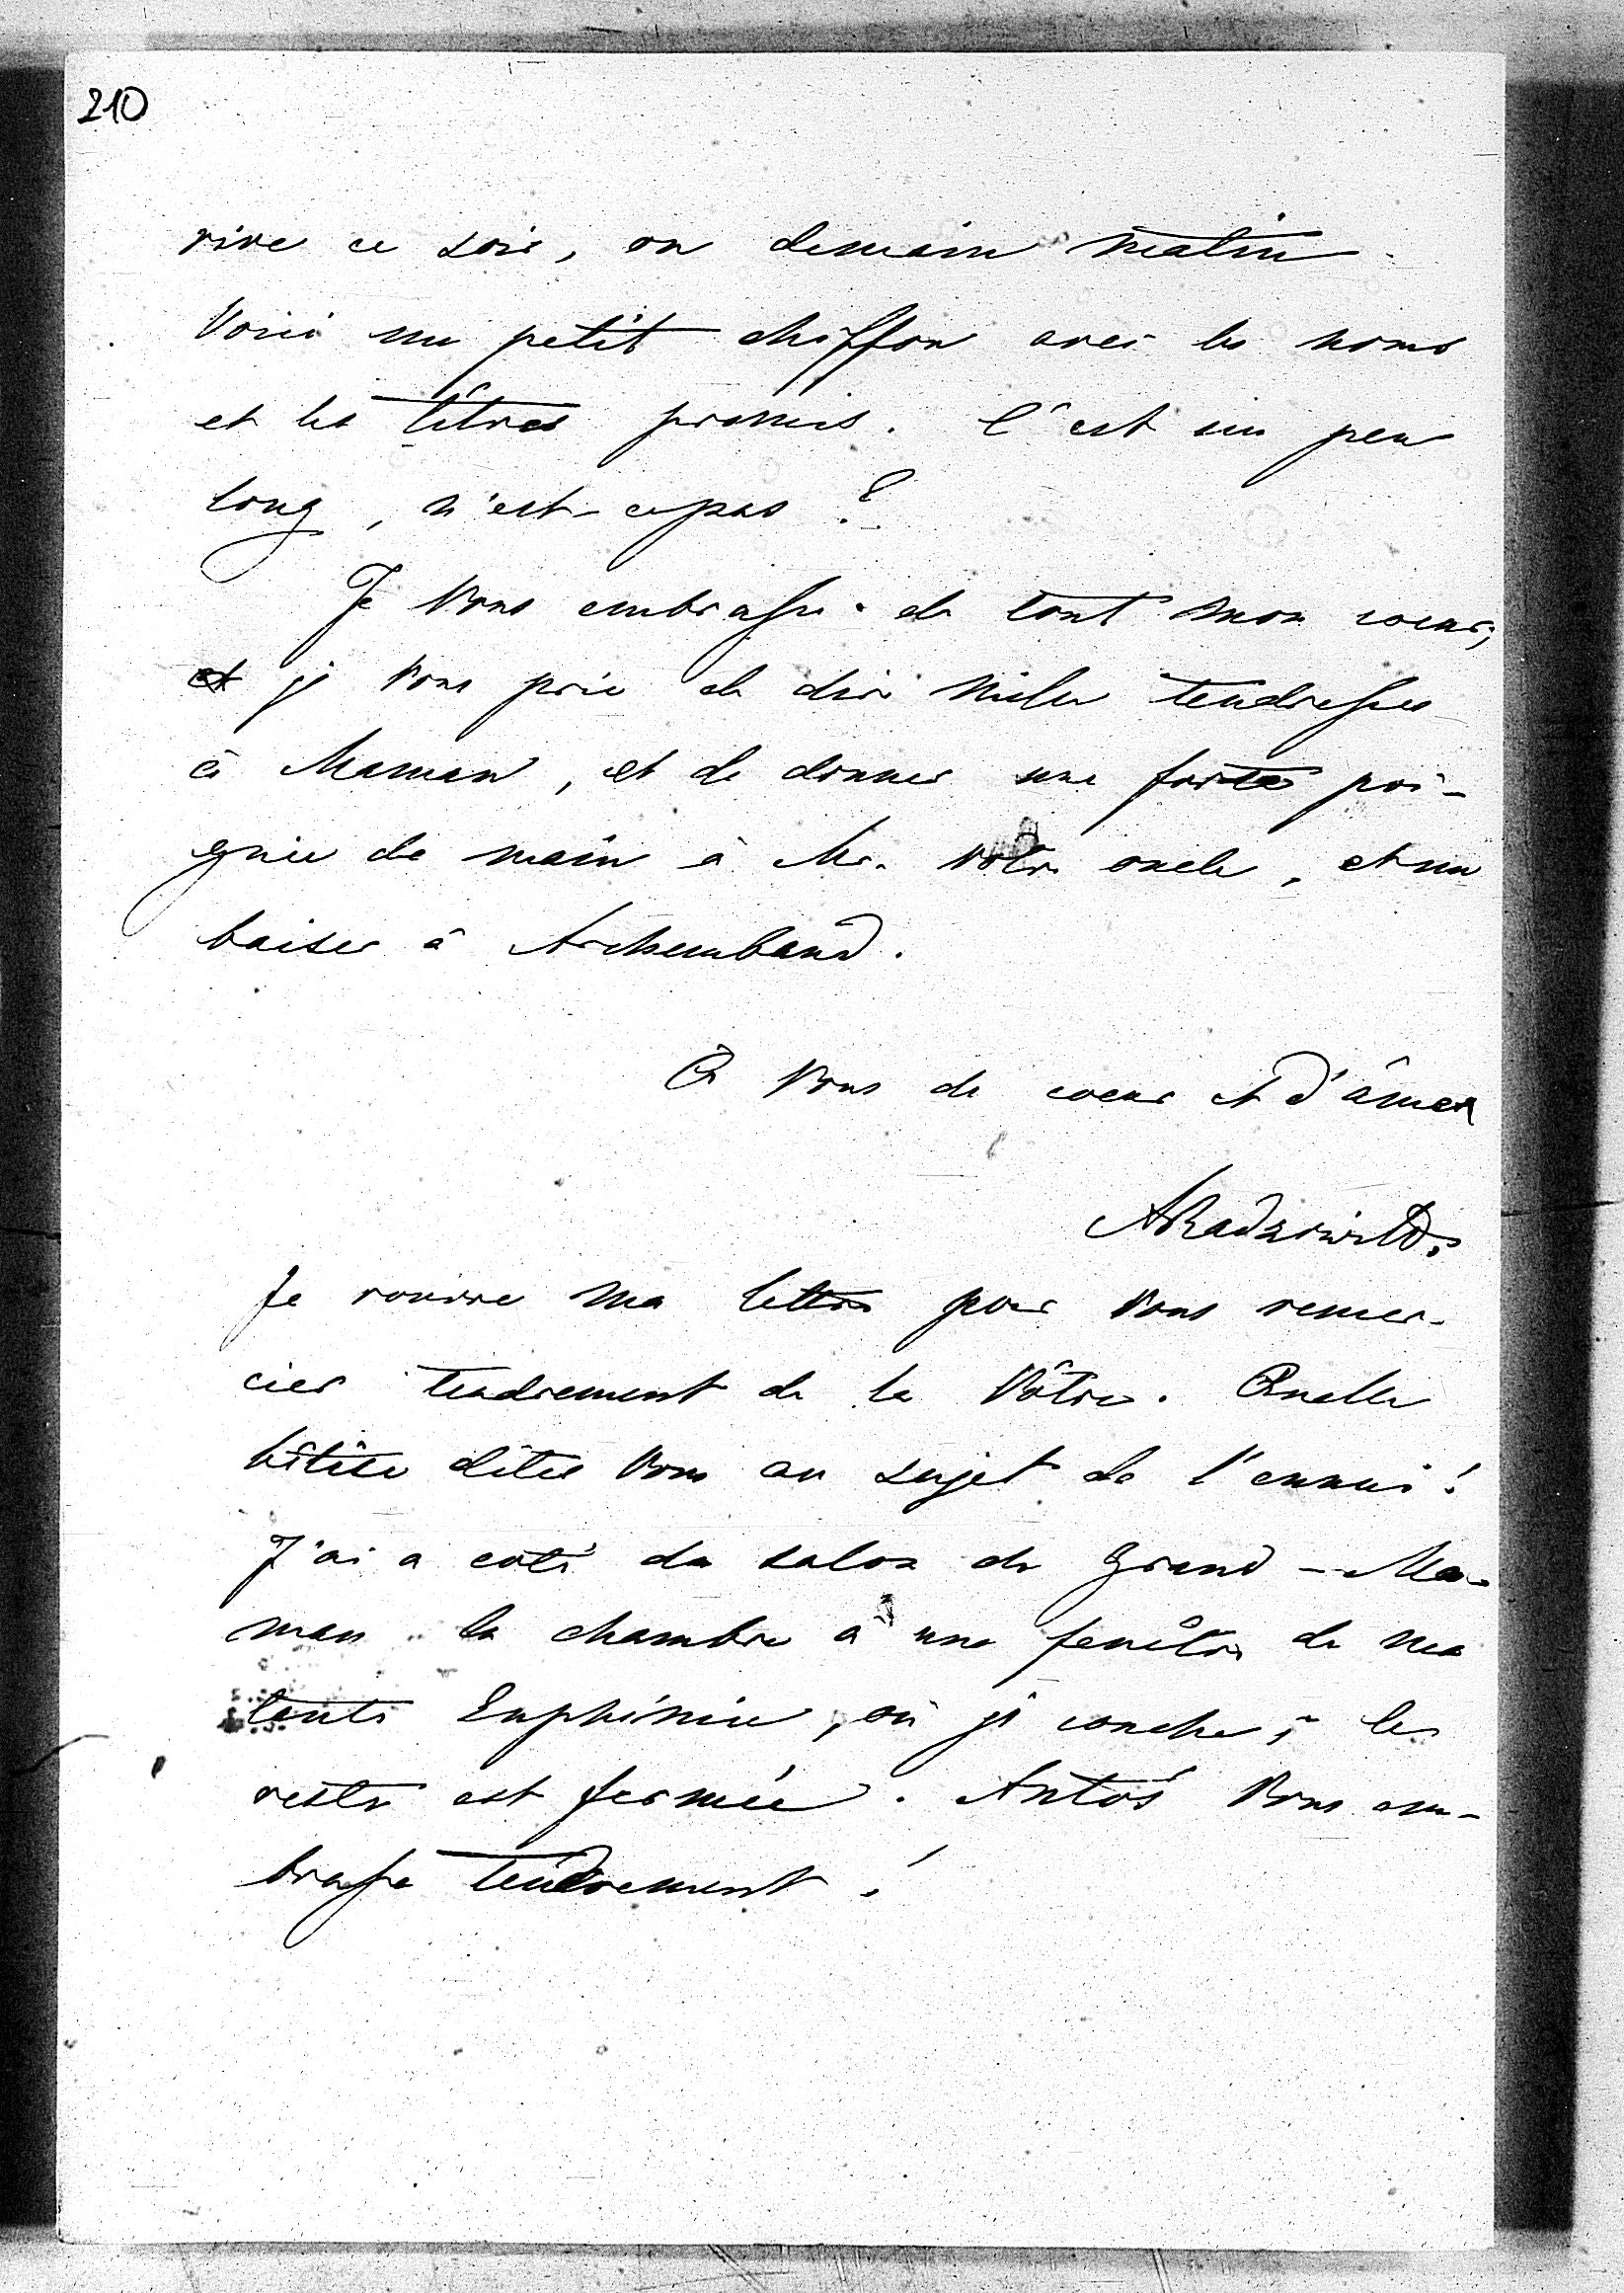 210
rive ce soir, ou demain matin.
Voici un petit chiffon avec les noms
et les titres promis. C'est un peu
long, n'est-ce pas ?
Je Vous embrasse de tout mon coeur,
et je Vous prie de dire milles tendresses
à Maman, et de donner une forte poi-
gnée de main à Mr. votre oncle, et un
baiser à Archembaud.
À Vous de coeur et d'âme
ARadziwill.
Je rouvre ma lettre pour Vous remer-
cier tendrement de la Vôtre. Quelle
bêtise dites Vous au sujet de l'ennui !
J'ai a coté du salon de Grand-Ma-
man la chambre à une fenêtre de ma
tante Euphémie, où je couche, le
reste est fermée. Antoś Vous em-
brasse tendrement !